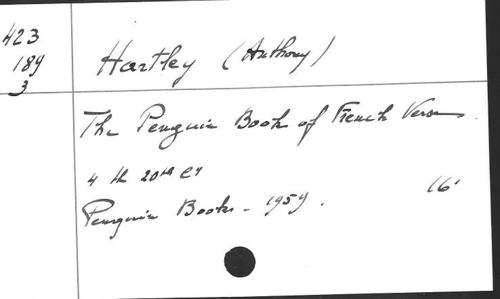 423
189
3
Hartley (Anthony)
The Penguin Book of French Verse.
4 th 20th Cy
Penguin Books - 1959. 16'